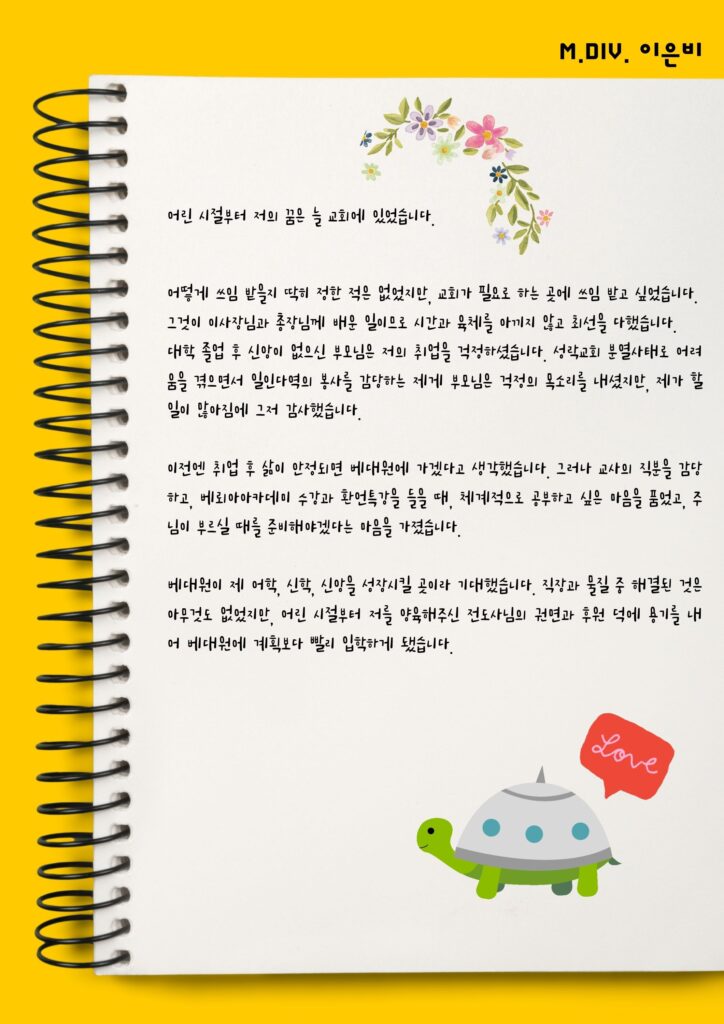 M.DIV. 이은비
어린 시절부터 저의 꿈은 늘 교회에 있었습니다.
어떻게 쓰임 받을지 딱히 정한 적은 없었지만, 교회가 필요로 하는 곳에 쓰임 받고 싶었습니다.
그것이 이사장님과 총장님께 배운 일이므로 시간과 육체를 아끼지 않고 최선을 다했습니다.
대학 졸업 후 신앙이 없으신 부모님은 저의 취업을 걱정하셨습니다. 성락교회 분열사태로 어려
움을 겪으면서 일인다역의 봉사를 감당하는 제게 부모님은 걱정의 목소리를 내셨지만, 제가 할
일이 많아짐에 그저 감사했습니다.
이전엔 취업 후 삶이 안정되면 베대원에 가겠다고 생각했습니다. 그러나 교사의 직분을 감당
하고, 베뢰아아카데미 수강과 환언특강을 들을 때, 체계적으로 공부하고 싶은 마음을 품었고, 주
님이 부르실 때를 준비해야겠다는 마음을 가졌습니다.
베대원이 제 어학, 신학, 신앙을 성장시킬 곳이라 기대했습니다. 직장과 물질 중 해결된 것은
아무것도 없었지만, 어린 시절부터 저를 양육해주신 전도사님의 권면과 후원 덕에 용기를 내
어 베대원에 계획보다 빨리 입학하게 됐습니다.
Love